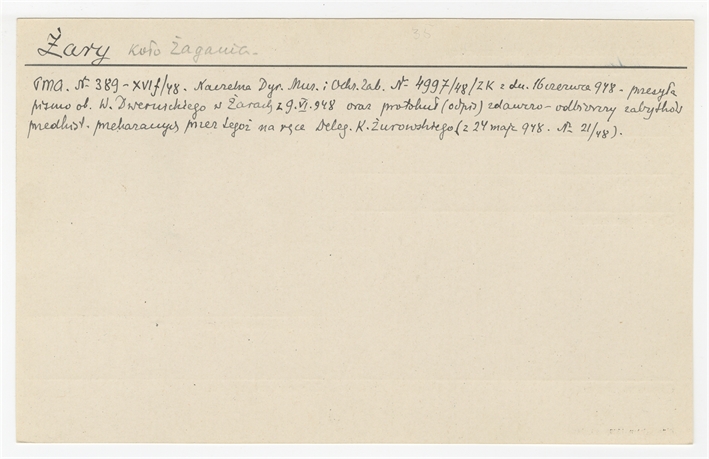 Żary koło Żagania.
PMA. Nr 389-XVIf/48. Naczelna Dyr. Muz. i Ochr. Zab. Nr 4997/48/ZK z dn. 16 czerwca 948 - przesyła
pismo ob. W. Dwerusickiego w Żarach z 9.VI.948 oraz protokuł (odpis) zdawczo-odbiorczy zabytków
predhist. przekazanych przez tegoż na ręce Deleg. K. Żurowskiego (z 24 maja 948. Nr 21/48).